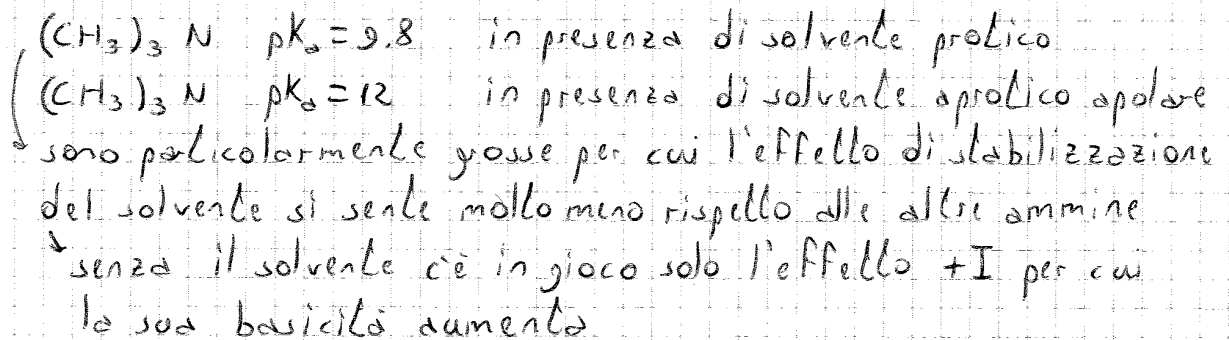 (CH₃)₃ N pKₐ = 9.8 in presenza di solvente protico
(CH₃)₃ N pKₐ = 12 in presenza di solvente aprotico apolare
sono particolarmente grosse per cui l'effetto di stabilizzazione
del solvente si sente molto meno rispetto alle altre ammine
senza il solvente c'è in gioco solo l'effetto +I per cui
la sua basicità aumenta